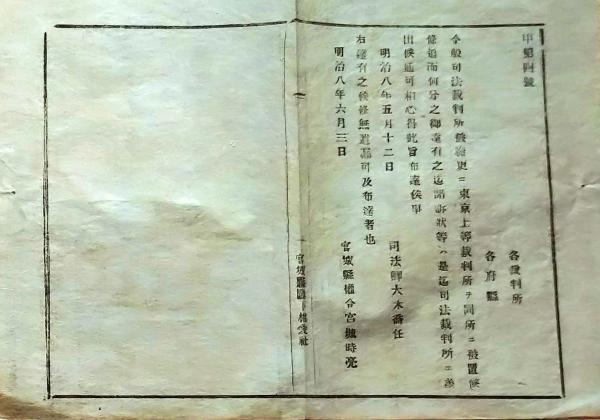 甲第四號
各裁判所
各府縣
今般司法裁判所被廢更ニ東京上等裁判所ヲ同所ニ被置候
條追而何分之御達有之迄諸訴状等ハ是迄司法裁判所ニ差
出候通可相心得此旨布達候事
明治八年五月十二日
司法卿大木喬任
右達有之候條無遺漏可及布達者也
明治八年六月三日
宮城縣權令宮城時亮
宮城縣